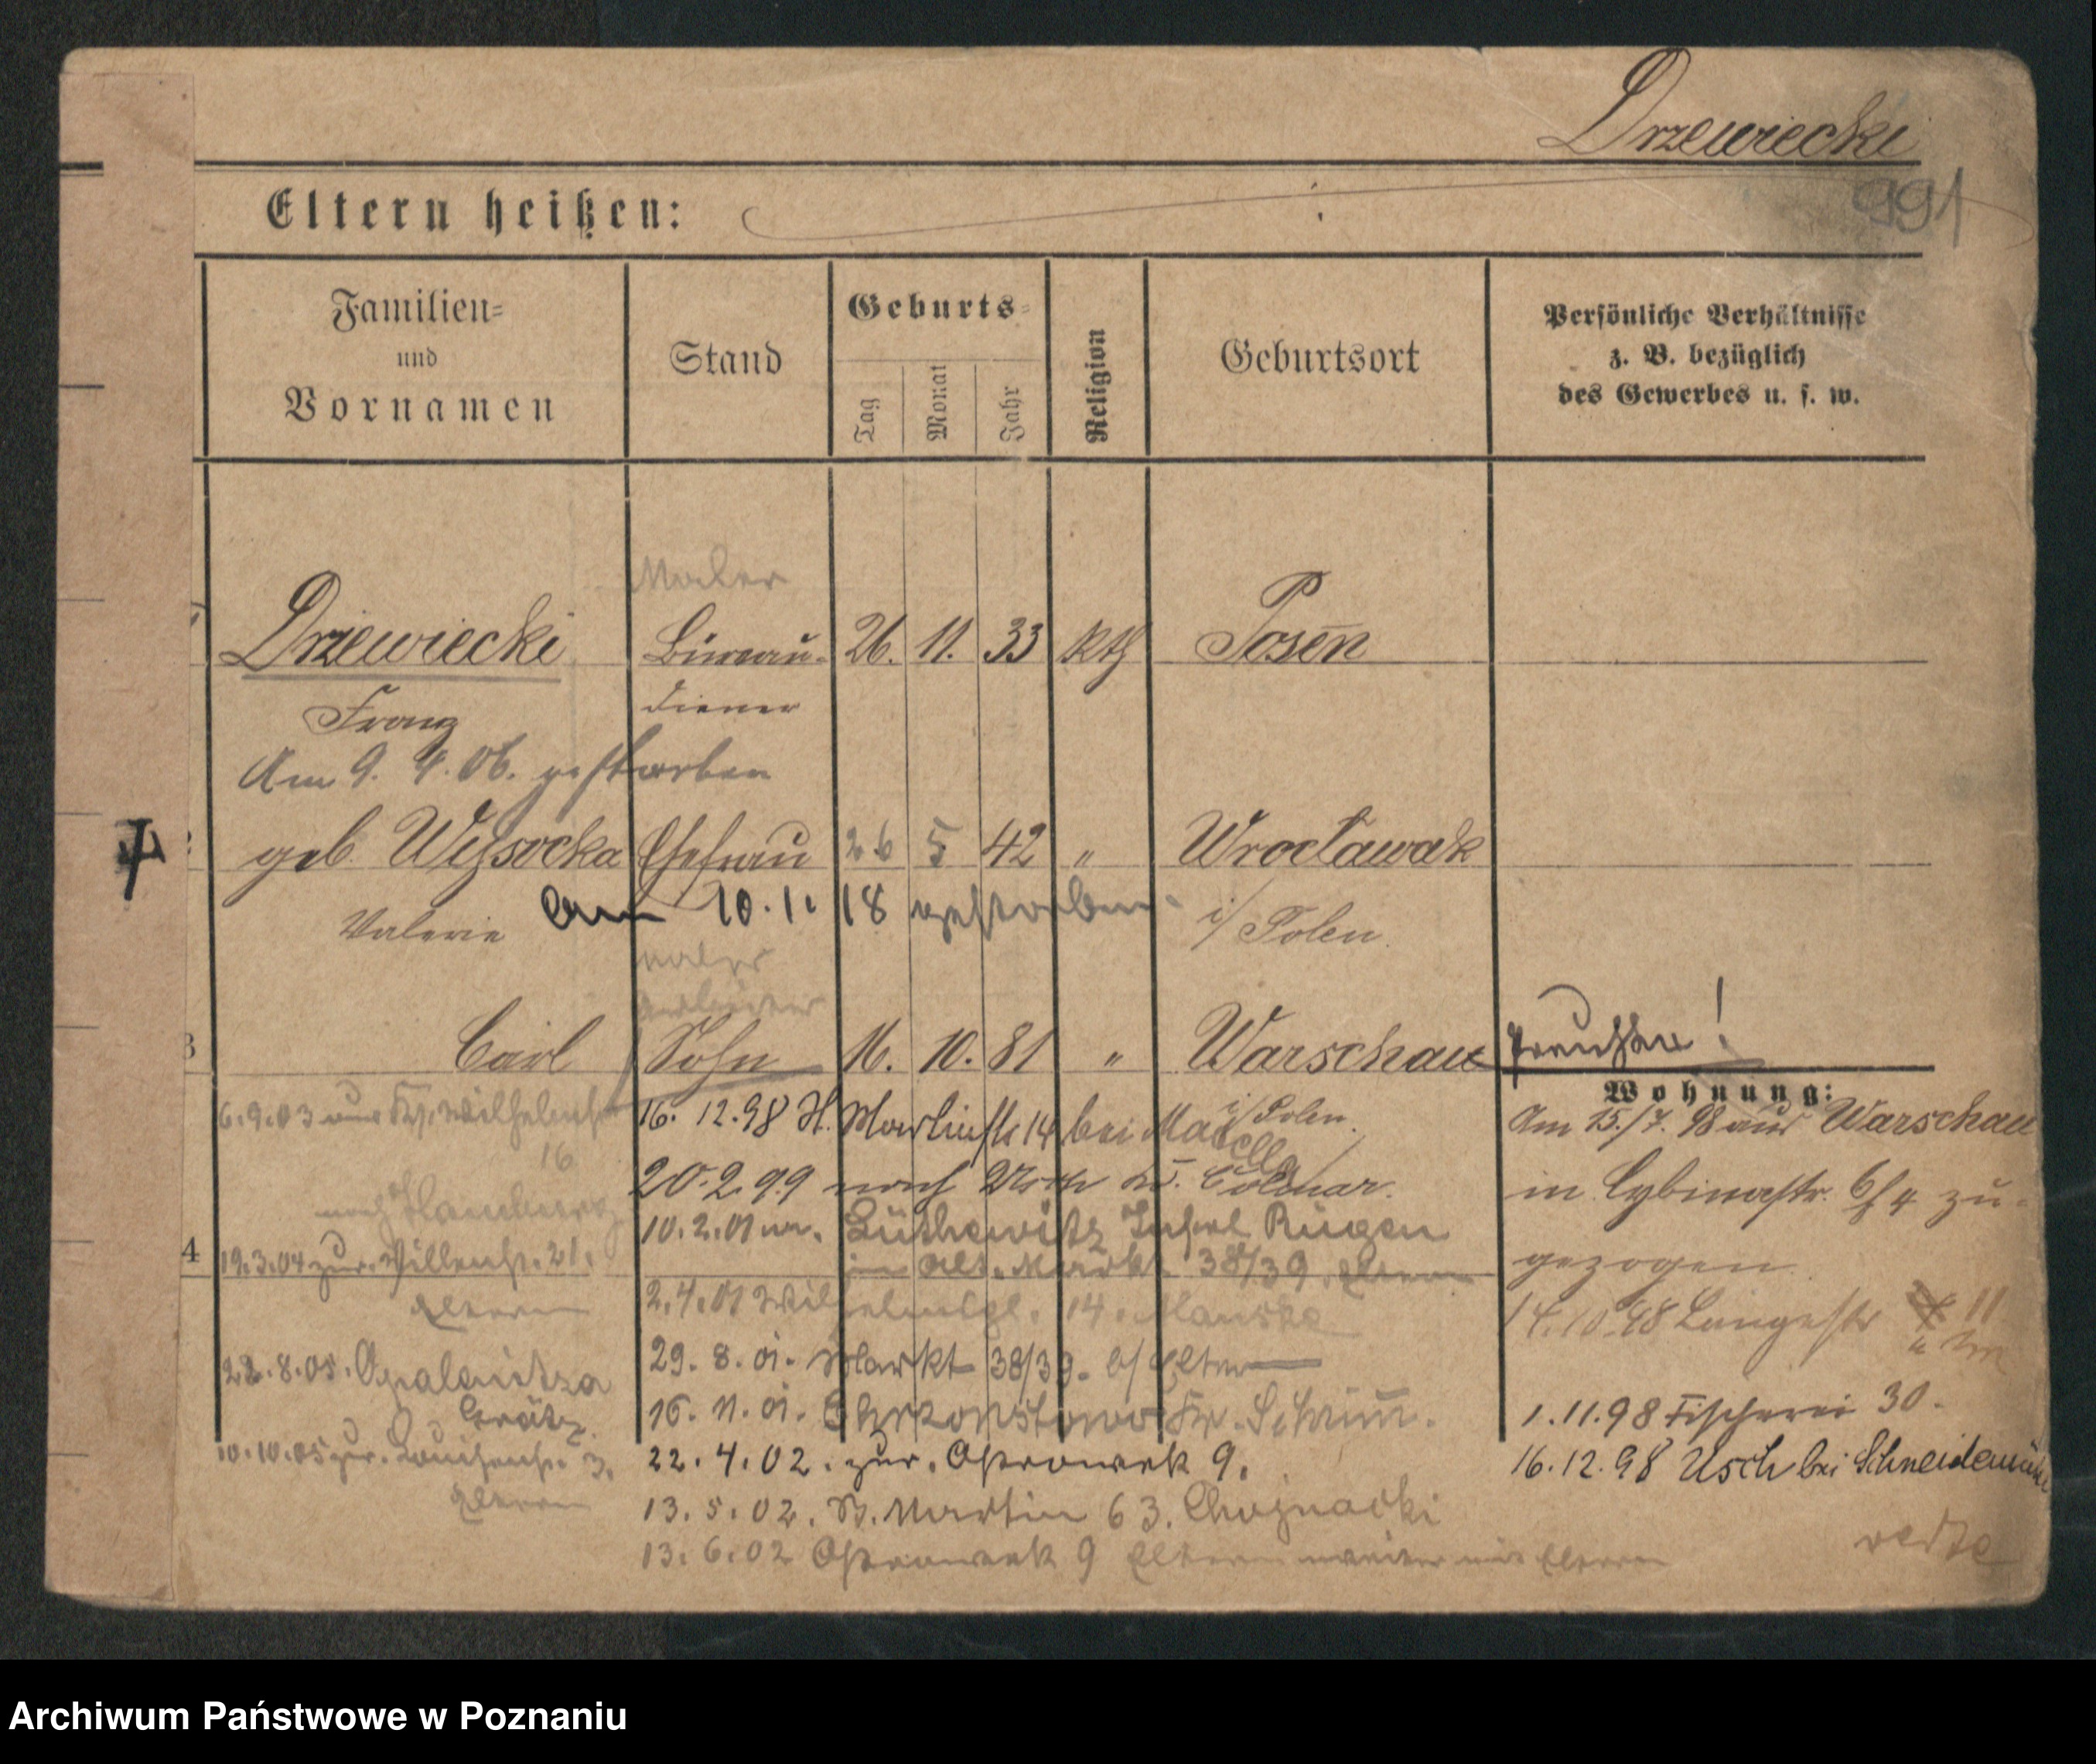 Drzewiecki
991
Eltern heißen:
Familien=
und
Vornamen
Stand
Geburts=
Tag
Monat
Jahr
Religion
Geburtsort
Persönliche Verhältnisse
z. B. bezüglich
des Gewerbes u. s. w.
Maler
Drzewiecki Büreau- 26. 11. 33 kth Posen
Franz diener
Am 9. 4. 06. gestorben
2 geb. Wysocka Ehefrau 26 5 42 " Wrocławak
Valerie am 10. 1. 18 gestorben i/ Polen.
Maler
3 Carl Sohn 16. 10. 81 " Warschau
i/ Polen.
Preußen!
Wohnung:
Am 15./7. 98 aus Warschau
in Cybinastr. 6/4 zu-
gezogen.
14.10.98 Langestr 11
1.11.98 Fischerei 30.
16.12.98 Usch bei Schneidemühl
verte
16. 12. 98 H. Martinstr 14 bei
20. 2. 99 nach Usch Kr. Colmar.
10. 2. 01 Insel Rügen
in Alt. Markt 38/39. Eltern
2. 4. 01 Wilhelmspl. 14. Manske
29. 8. 01. Markt 38/39. b/ Eltern
16. 11. 01. Chrzonstowo Kr. Schrimm.
22. 4. 02. zur. Ostrowek 9.
13. 5. 02. St. Martin 63. Chojnacki
13. 6. 02 Ostrowek 9 Eltern weiter mit Eltern
6. 9. 03 aus Wilhelmstr
16
nach Hamburg
4 19. 3. 04 zur. 21.
Eltern
22. 8. 05. Opalenitza
Grätz.
10. 10. 05 zur. Louisenstr. 3.
Eltern
Archiwum Państwowe w Poznaniu